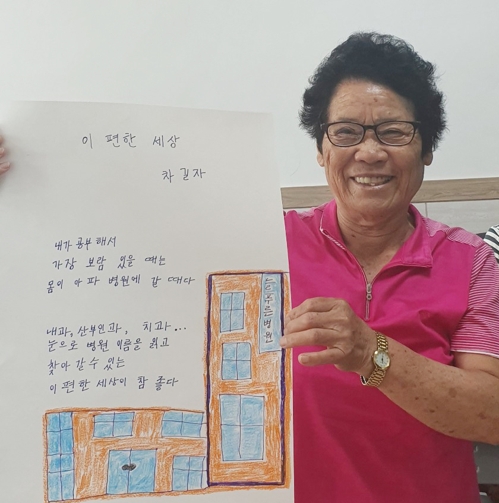 이 편한 세상
차 길자
내가 공부해서
가장 보람 있을 때는
몸이 아파 병원에 갈 때다
내과, 산부인과, 치과...
눈으로 병원 이름을 읽고
찾아 갈 수 있는
이 편한 세상이 참 좋다
늘푸른병원